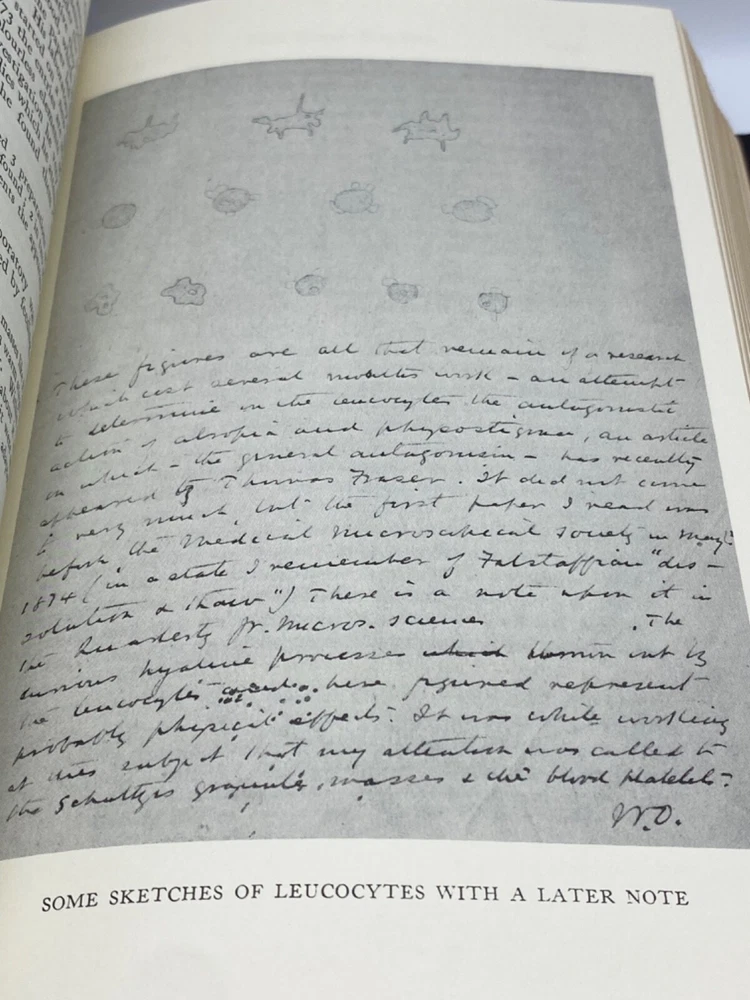 starred in
73 then
colourless
investigation
which he
he found
and 3
found; 2
laboratory
by
These figures are all that remain of a research
which cost several months work – an attempt
to determine on the leucocytes the antagonistic
action of atropia and physostigma, an article
on which – the general antagonism – has recently
appeared by Thomas Fraser. It did not come
to very much, but the first paper I read was
before the Medical Microscopical Society in May
1874 (in a state I remember of Falstaffian "dis-
solution & thaw") There is a note upon it in
the Quarterly Jr. Micros. Science . The
curious hyaline processes which thrown out by
the leucocytes and here figured represent
probably physical effects. It was while working
at this subject that my attention was called to
the Schultze's granular masses & the blood platelets.
W.O.
SOME SKETCHES OF LEUCOCYTES WITH A LATER NOTE